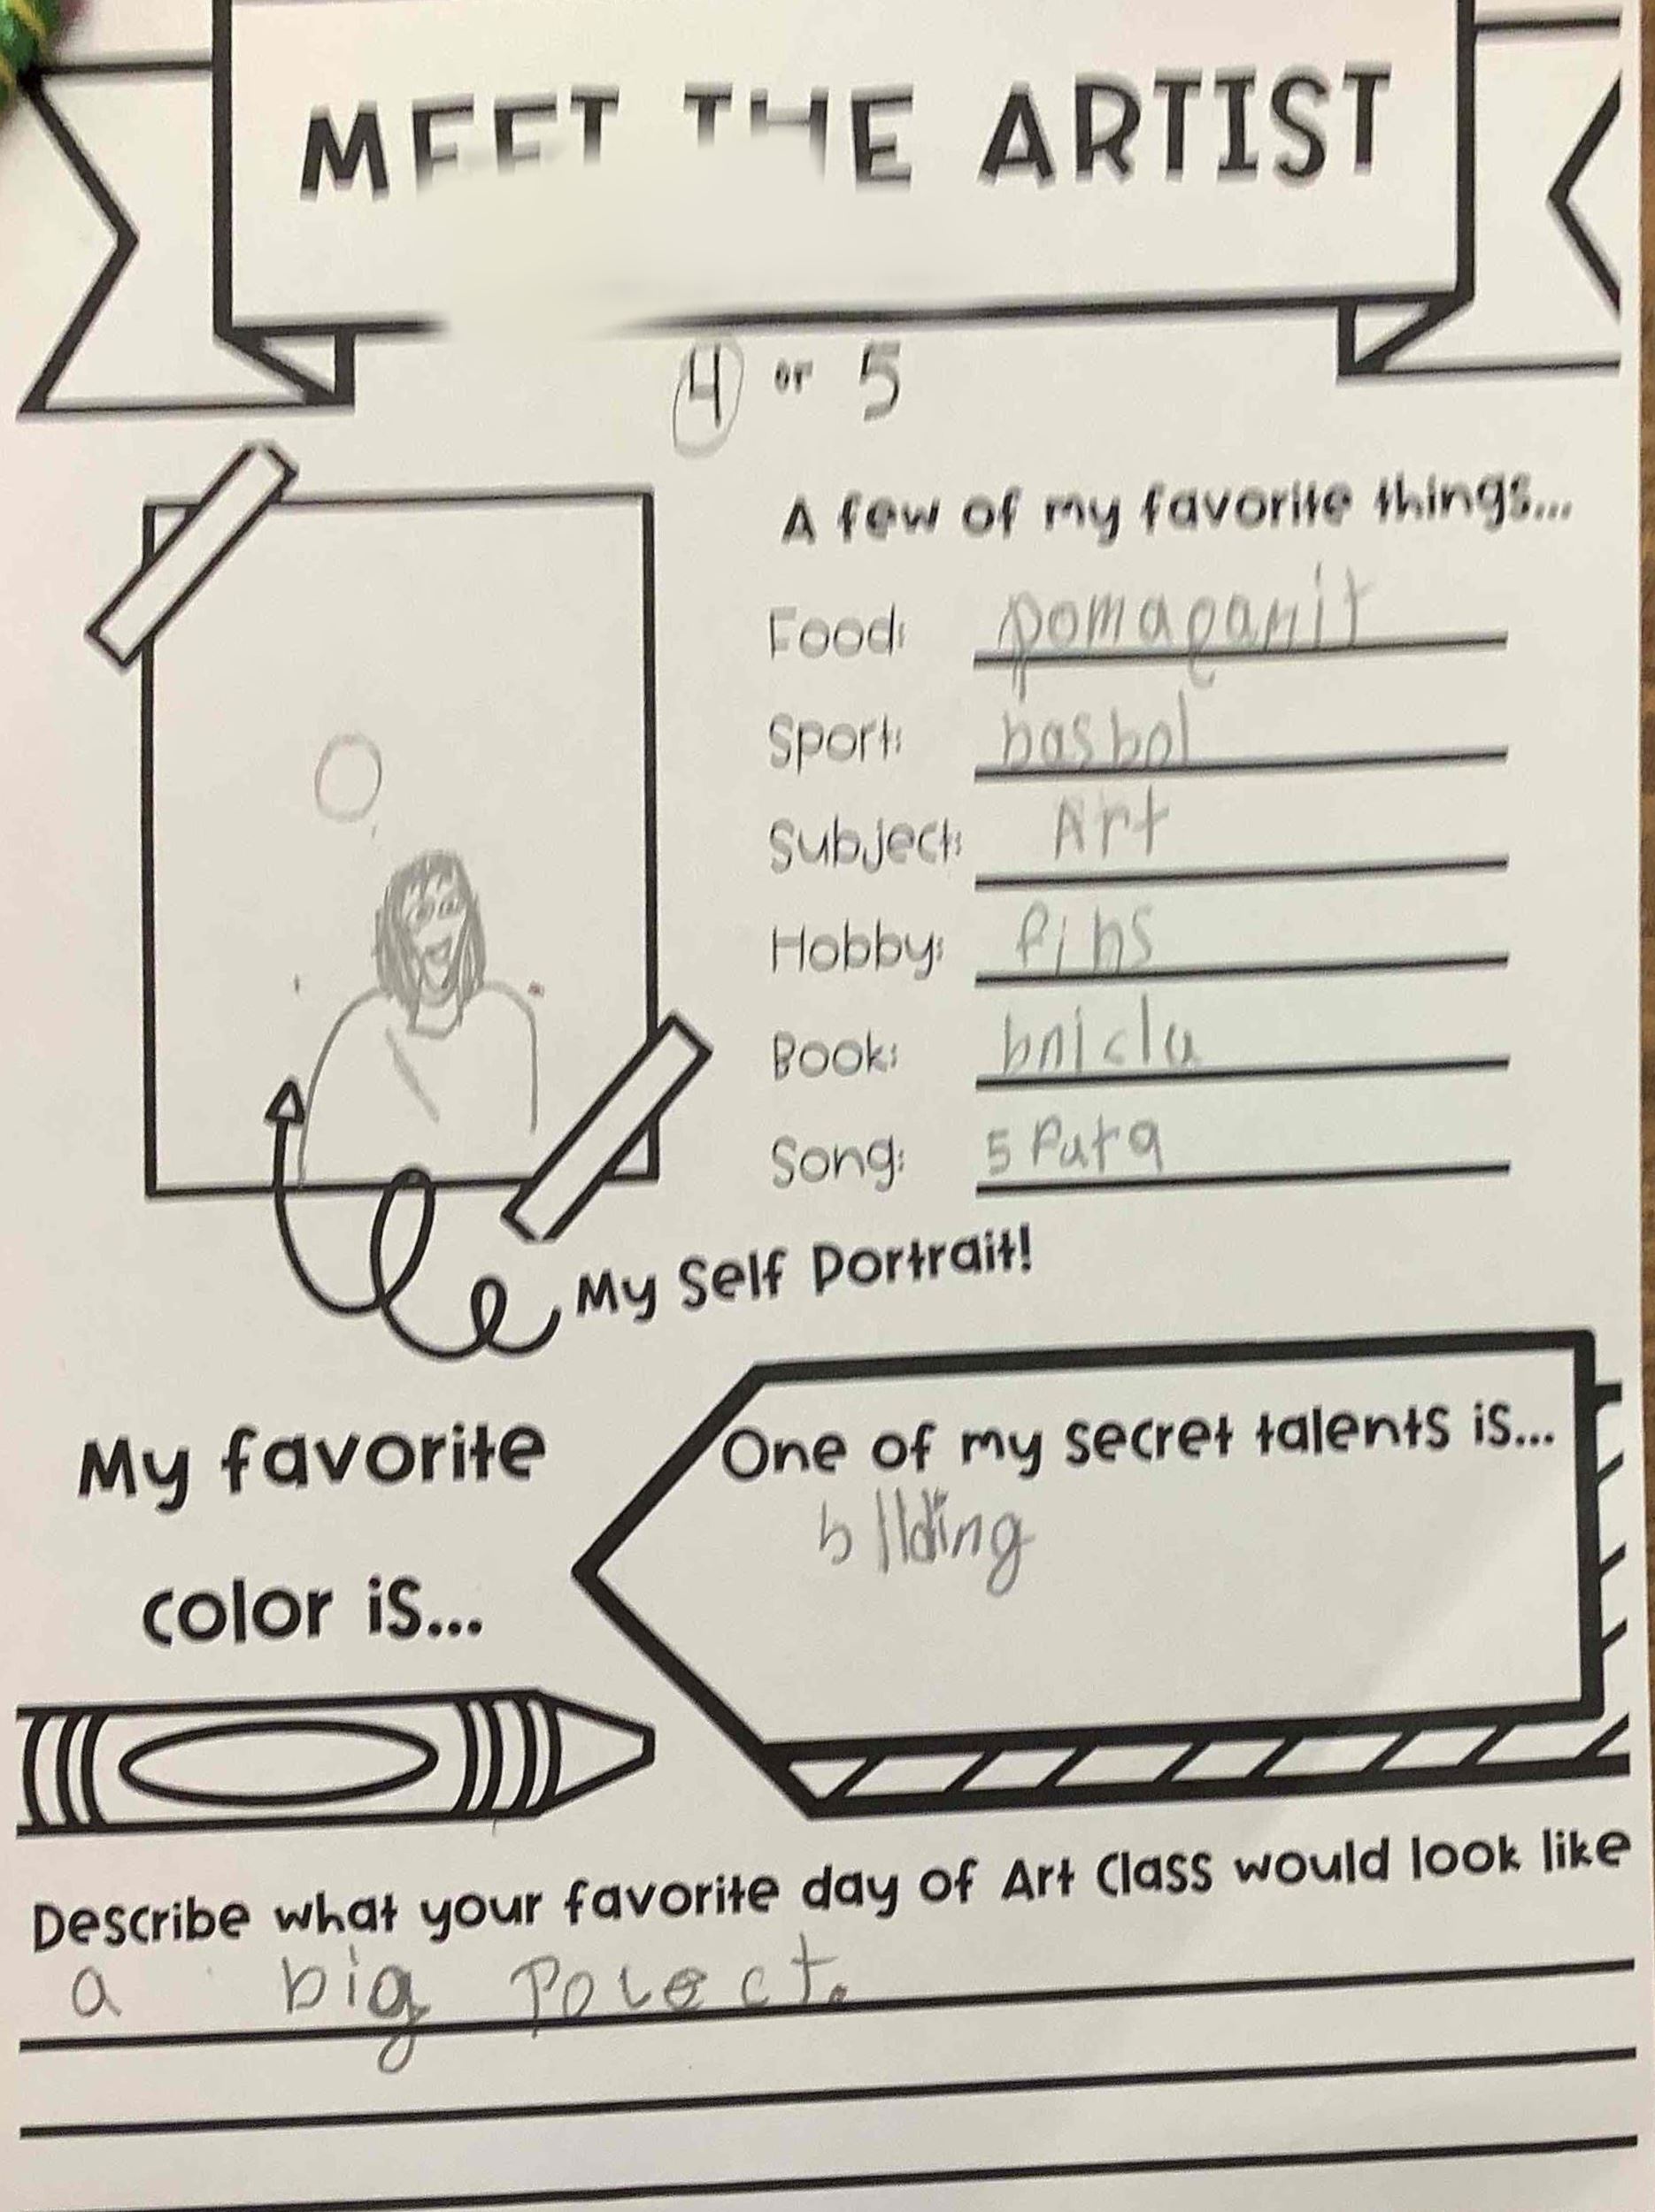 MEET THE ARTIST
4 or 5
A few of my favorite things...
Food: pomaganit
Sport: basbol
Subject: Art
Hobby: fihs
Book: bnicla
Song: 5 Fata
My Self Portrait!
My favorite
color is...
One of my secret talents is...
bllding
Describe what your favorite day of Art Class would look like
a big Polect.